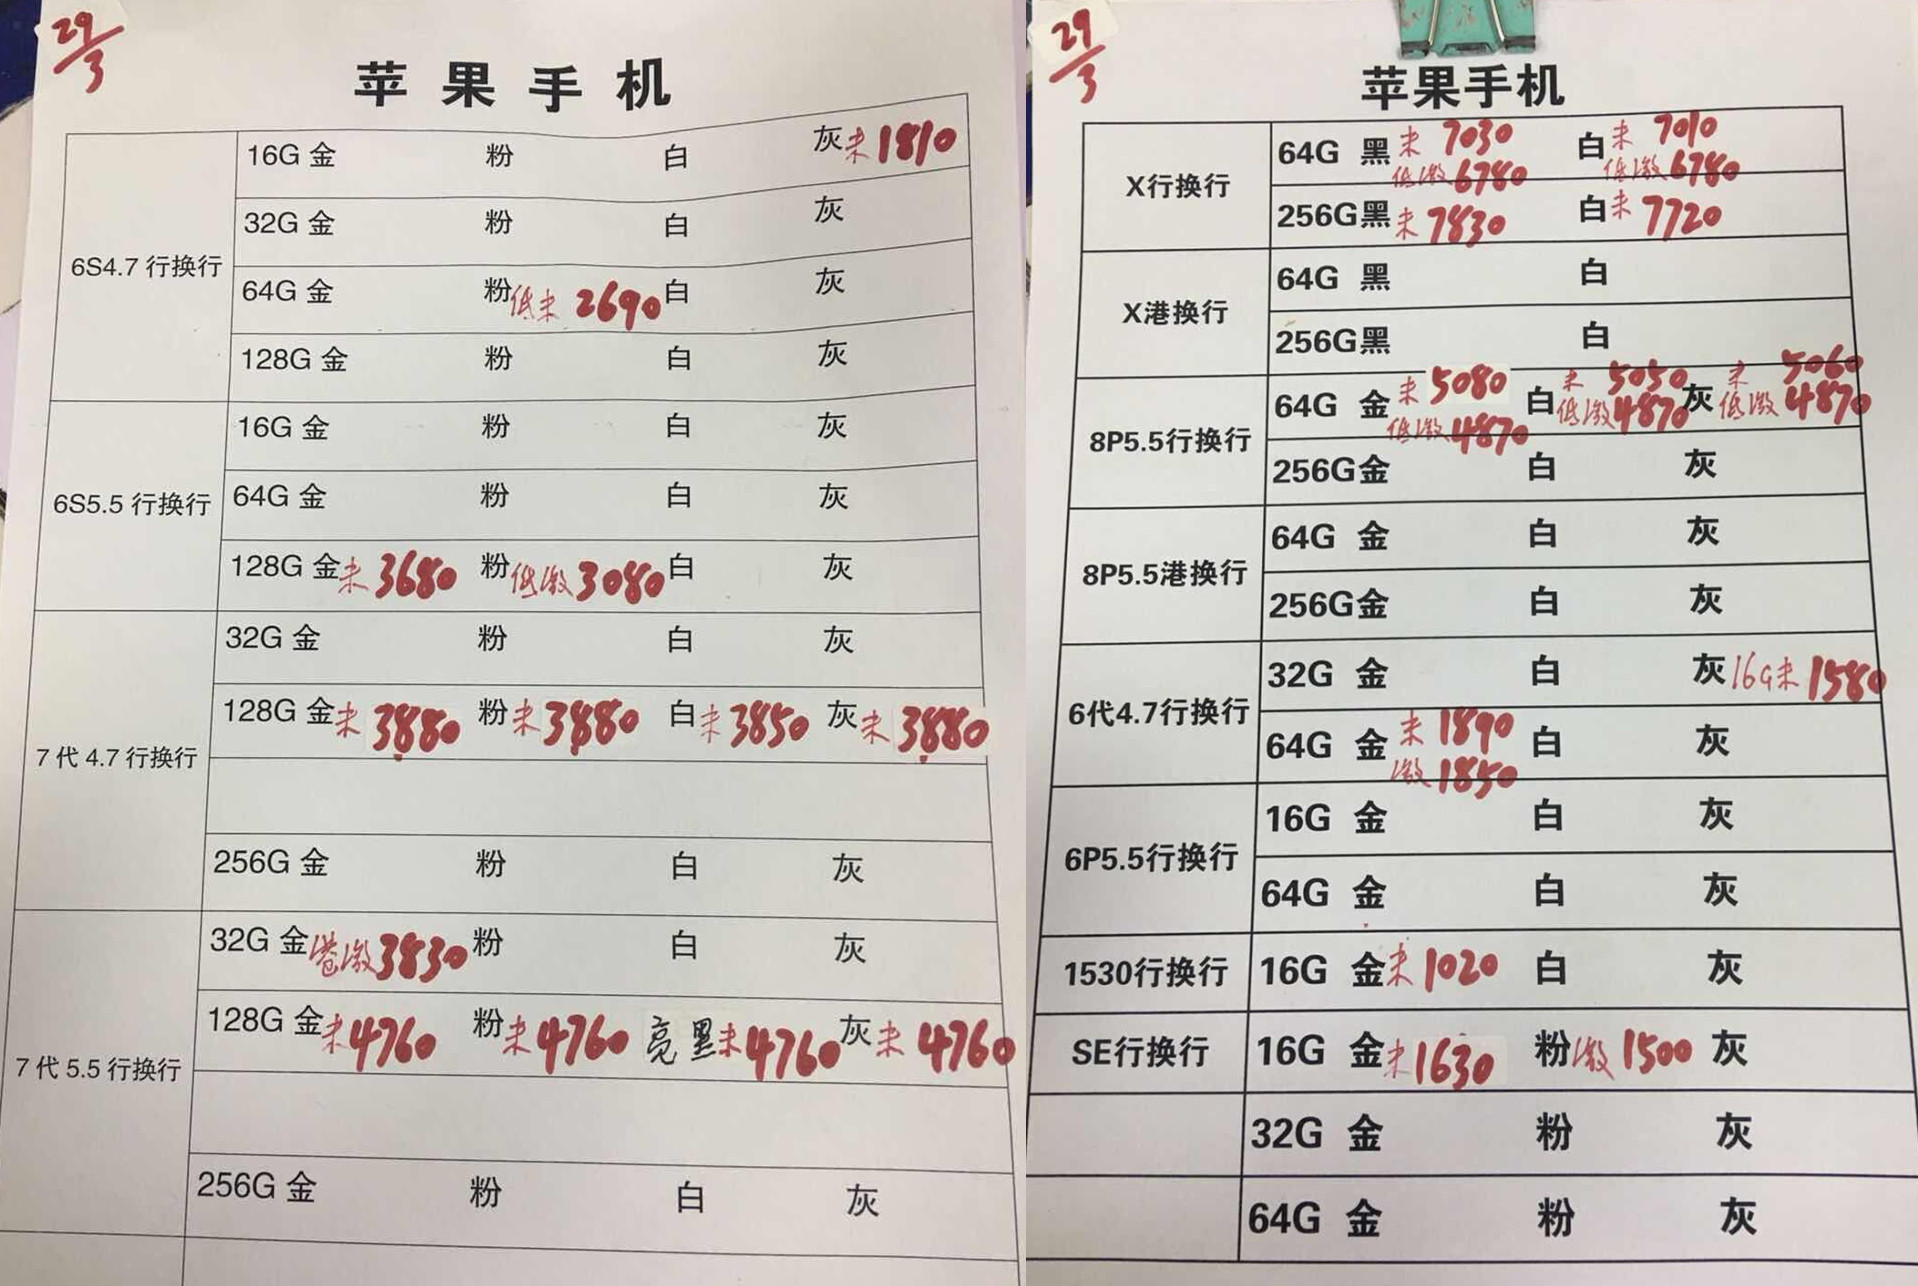 29/3
苹果手机
6S4.7行换行
16G 金 粉 白 灰 未 1810
32G 金 粉 白 灰
64G 金 粉 低未 2690 白 灰
128G 金 粉 白 灰
6S5.5行换行
16G 金 粉 白 灰
64G 金 粉 白 灰
128G 金 未 3680 粉 低激 3080 白 灰
7代4.7行换行
32G 金 粉 白 灰
128G 金 未 3880 粉 未 3880 白 未 3850 灰 未 3880
256G 金 粉 白 灰
7代5.5行换行
32G 金 港激 3830 粉 白 灰
128G 金 未 4760 粉 未 4760 亮黑 未 4760 灰 未 4760
256G 金 粉 白 灰
29/3
苹果手机
X行换行
64G 黑 未 7030 白 未 7010
低激 6780 低激 6780
256G黑 未 7830 白 未 7720
X港换行
64G 黑 白
256G黑 白
8P5.5行换行
64G 金 未 5080 白 未 5050 灰 未 5060
低激 4870 低激 4870 低激 4870
256G金 白 灰
8P5.5港换行
64G 金 白 灰
256G金 白 灰
6代4.7行换行
32G 金 白 灰 16G未 1580
64G 金 未 1890 白 灰
激 1850
6P5.5行换行
16G 金 白 灰
64G 金 白 灰
1530行换行
16G 金 未 1020 白 灰
SE行换行
16G 金 未 1630 粉 激 1500 灰
32G 金 粉 灰
64G 金 粉 灰